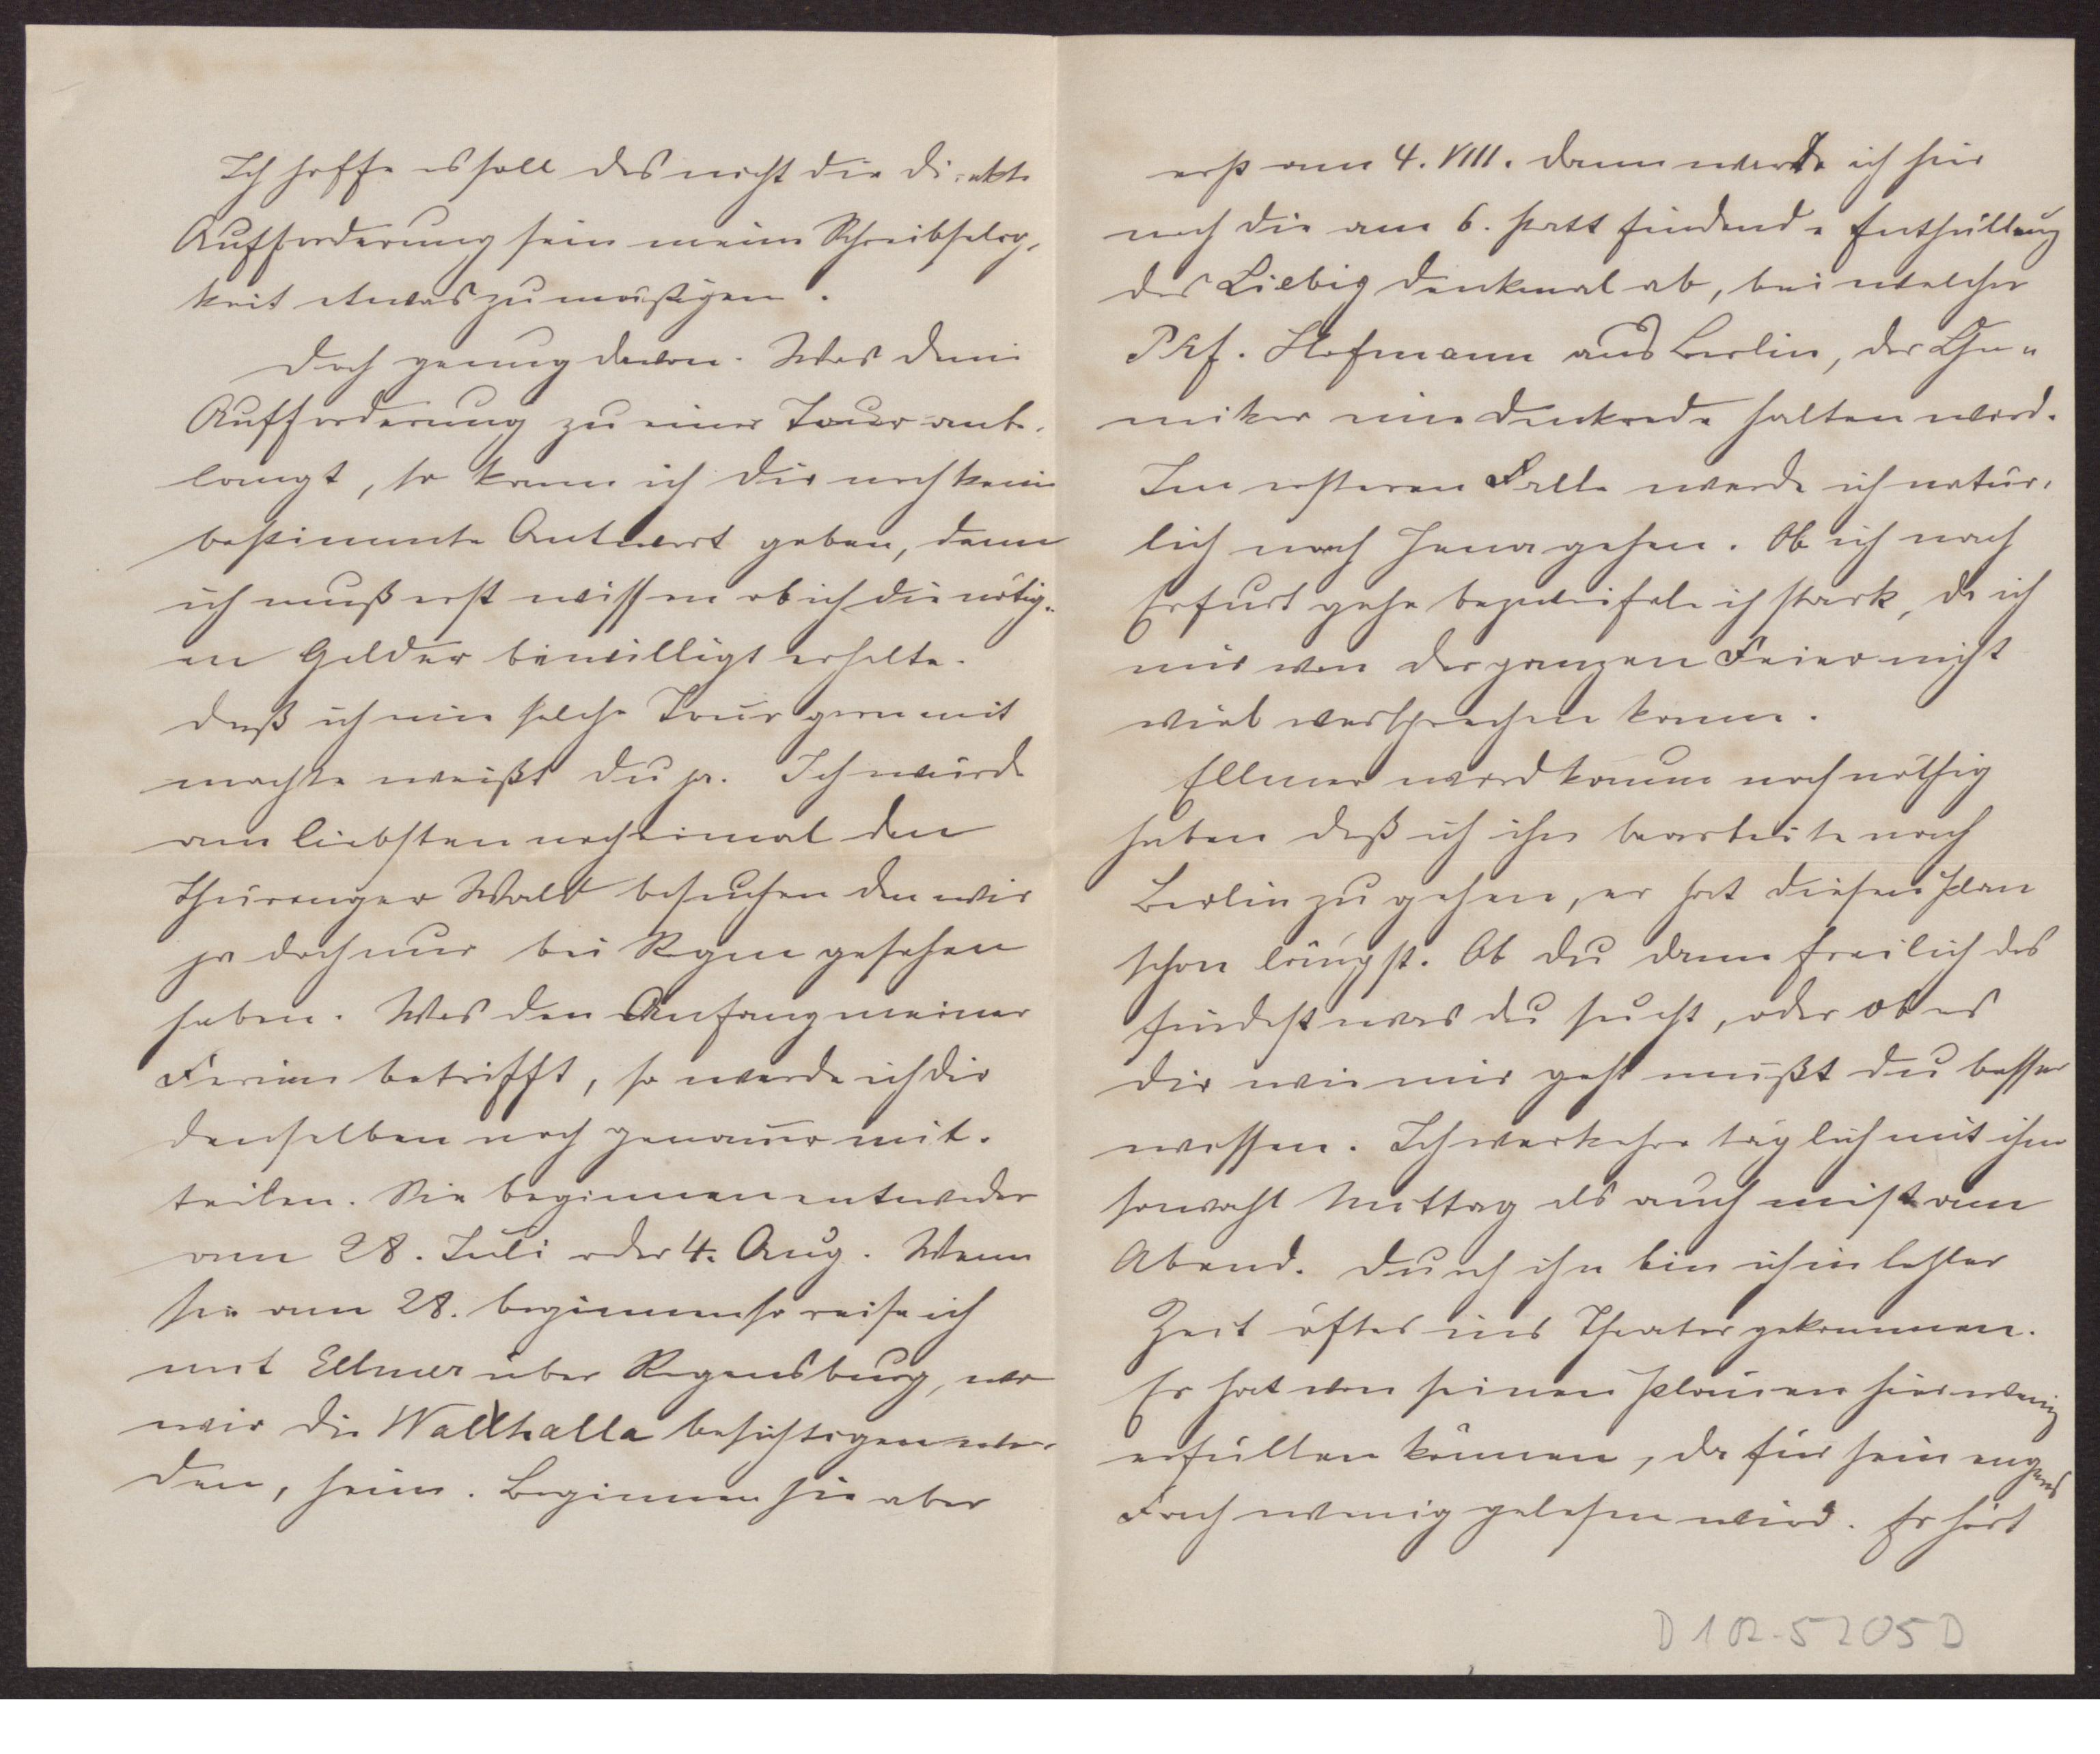 Ich hoffe es soll das nicht die direkte
Aufforderung sein meine Schreibselig-
keit etwas zu mäßigen.
Doch genug davon. Was deine
Aufforderung zu einer Tour anbe-
langt, so kann ich dir noch keine
bestimmte Antwort geben, denn
ich muß erst wissen ob ich die nötig-
en Gelder bewilligt erhalte.
Daß ich eine solche Tour gern mit
machte weißt du ja. Ich würde
am liebsten noch einmal den
Thüringer Wald besuchen den wir
ja doch nur bei Regen gesehen
haben. Was den Anfang meiner
Ferien betrifft, so werde ich dir
denselben noch genauer mit-
teilen. Sie beginnen entweder
am 28. Juli oder 4. Aug. Wenn
sie am 28. beginnen so reise ich
mit Ellmer über Regensburg, wo
wir die Wallhalla besichtigen wer-
den, heim. Beginnen sie aber
erst am 4. VIII. dann warte ich hier
noch die am 6. statt findende Enthüllung
des Liebig Denkmal ab, bei welcher
Prf. Hofmann aus Berlin, der Che-
miker eine Denkrede halten wird.
Im ersteren Falle werde ich natür-
lich nach Jena gehen. Ob ich nach
Erfurt gehe bezweifele ich stark, da ich
mir von der ganzen Feier nicht
viel versprechen kann.
Ellmer wird kaum noch nöthig
haben daß ich ihn bearbeite nach
Berlin zu gehen, er hat diesen Plan
schon längst. Ob du dann freilich das
findest was du suchst, oder ob es
dir wie mir geht mußt du besser
wissen. Ich verkehre täglich mit ihm
sowohl Mittag als auch meist am
Abend. Durch ihn bin ich in letzter
Zeit öfter ins Theater gekommen.
Er hat von seinen Plänen hier wenig
erfüllen können, da für sein engeres
Fach wenig gelesen wird. Er hört
D 102-5205 D